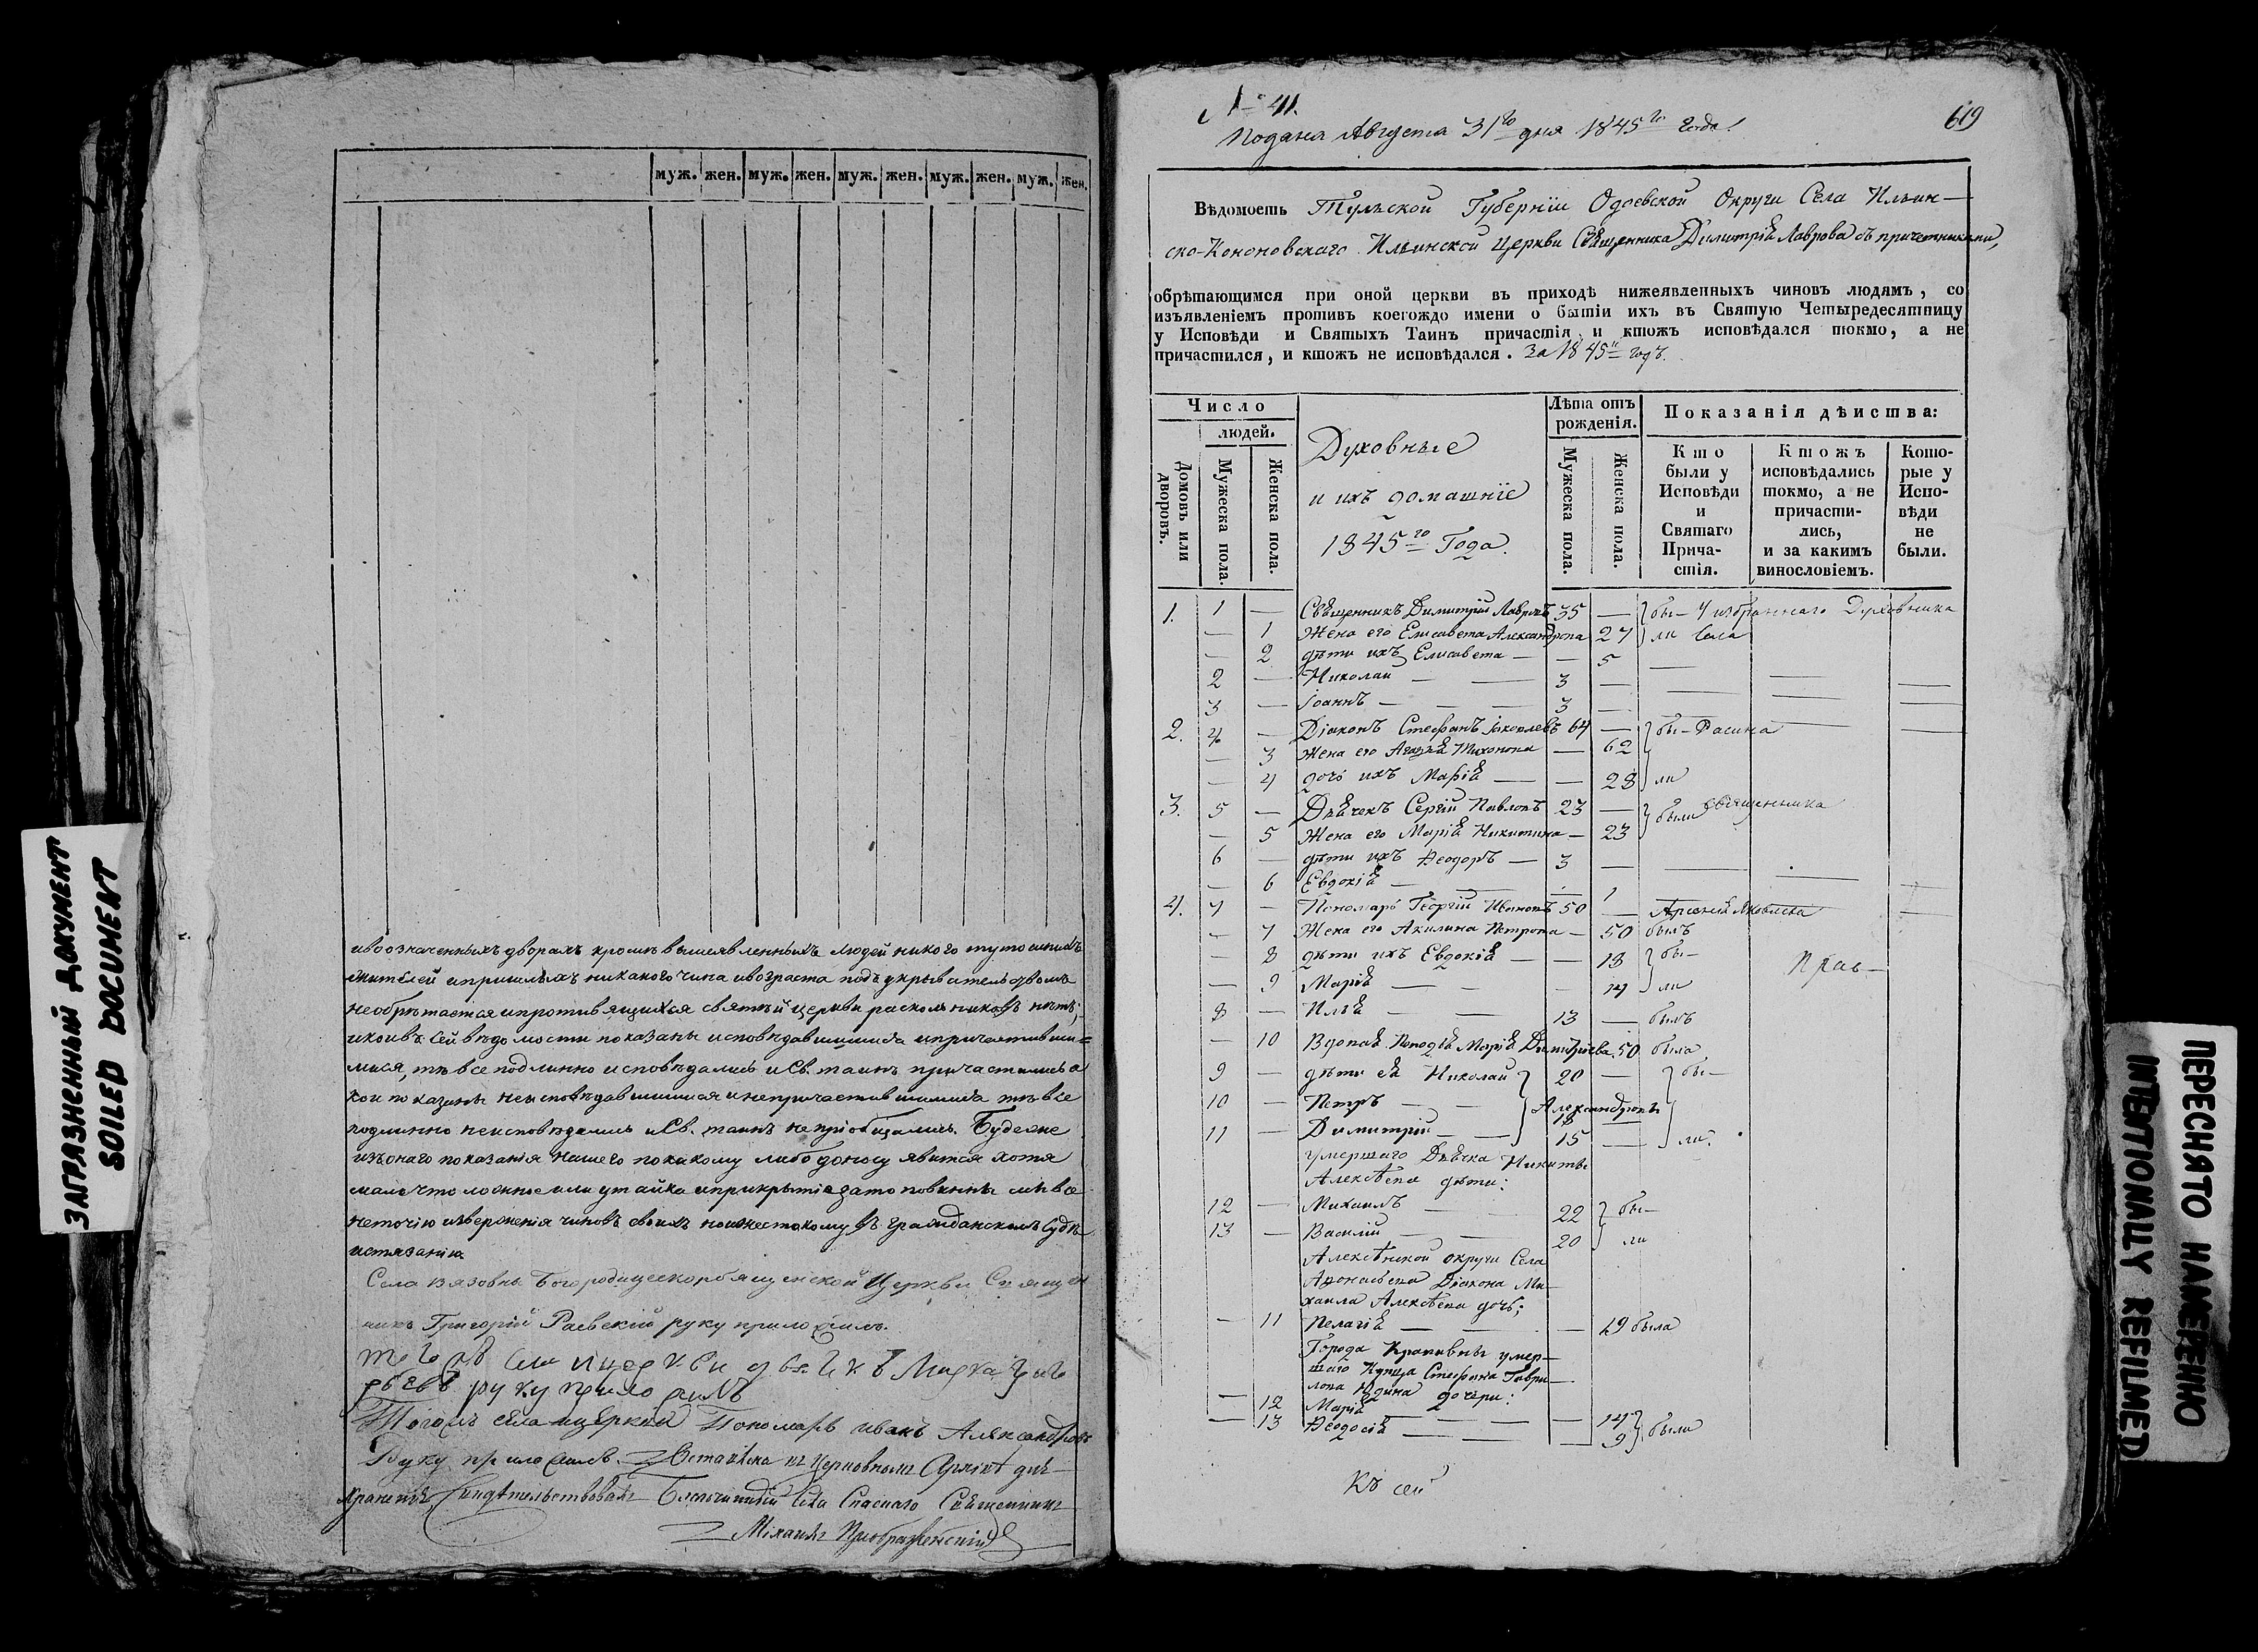 ЗАГРЯЗНЕННЫЙ ДОКУМЕНТ
SOILED DOCUMENT
муж. жен. муж. жен. муж. жен. муж. жен. муж. жен.
ивоозначенныхъ дворахъ кромѣ вышеявленныхъ людей никого тутошнихъ
жителей ипришлыхъ никакого чина ивозраста подъ укрывательствомъ
необрѣтается ипротивящихся святѣй церкви раскольниковъ нѣтъ;
икоивъ сей вѣдомости показаны исповѣдавшимися ипричастивши=
мися, тѣ все подлинно исповѣдались иСв. таинъ причастились а
кои показаны неисповѣдавшимися инепричастившимися тѣ все
подлинно неисповѣдались иСв. таинъ непріобщались. Будеже
изъ онаго показанія нашего покакому либо доносу явится хотя
мало что ложное или утайка иприкрытіе зато повинны мы все
неточію изверженія чиновъ своихъ ноижестокому въ гражданскомъ судѣ
истязанію
Села вязовны Богородицескорбященской Церкви Священ
никъ Григорій Раевскій руку приложилъ.
тогожъ села ицеркви
руку приложилъ
Тогожъ села ицеркви Пономарь иванъ Александровъ
Руку приложилъ. Оставлена въ Церковномъ Архивѣ для
храненія Свидѣтельствовалъ Благочинный Села Спаскаго Священникъ
Михаилъ Преображенскій
№ 41.
Подана Августа 31го дня 1845го года.
619
Вѣдомость Тульской Губерніи Одоевской Округи Села Ильин—
ско-Кононовскаго Ильинской церкви Священника Димитрія Лаврова съ причетниками,
обрѣтающимся при оной церкви въ приходѣ нижеявленныхъ чиновъ людямъ, со
изъявленіемъ противъ коегождо имени о бытіи ихъ въ Святую Четыредесятницу
у Исповѣди и Святыхъ Таинъ причастія, и ктожъ исповѣдался токмо, а не
причастился, и ктожъ не исповѣдался. За 1845й годъ.
Число
людей.
Домовъ или дворовъ.
Мужеска пола.
Женска пола.
Духовные
и ихъ домашніе
1845го Года.
Лѣта отъ рожденія.
Мужеска пола.
Женска пола.
Показанія дѣйства:
Кто были у Исповѣди и Святаго Прича- стія.
Ктожъ исповѣдались токмо, а не причасти- лись, и за какимъ винословіемъ.
Кото- рые у Испо- вѣди не были.
1. 1 — Священникъ Димитрій Лавровъ 35 — бы— У избраннаго Духовника
— 1 Жена его Елисавета Александрова 27 ли Села
— 2 дѣти ихъ Елисавета — — 5 —
2 — Николай — — 3 — — — —
3 — Іоаннъ — — 3 — — — —
2. 4 — Діаконъ Стефанъ Іаковлевъ 64 — бы—
— 3 Жена его Агафія Тихонова — 62
— 4 дочь ихъ Марія — — 28 ли
3. 5 — Дьячекъ Сергій Павловъ 23 — были священника
— 5 Жена его Марія Никитина — 23
6 — дѣти ихъ Ѳеодоръ — 3 — —
— 6 Евдокія — — — 1 — —
4. 7 — Пономарь Георгій Ивановъ 50 —
— 7 Жена его Акилина Петрова — 50 былъ
— 8 дѣти ихъ Евдокія — — 18 бы—
— 9 Марія — — — 14 ли
8 — Илія — — 13 — былъ
— 10 Вдовая Попадья Марія Димитріева 50 была
9 — дѣти ея Николай 20 — бы—
10 — Петръ — — Александровы 18 —
11 — Димитрій — 15 — ли
умершаго Дьячка Никиты
Алексѣева дѣти:
12 — Михаилъ — — 22 бы—
13 — Василій — — 20 ли
Алексѣнской округи Села
Діакона Ми—
хаила Алексѣева дочь;
— 11 Пелагія — — — 19 была
Города Крапивны умер—
шаго Купца Стефана Гаври—
лова Юдина дочери:
— 12 Марія — — — 14 были
— 13 Ѳеодосія — — — 9
Къ сей
ПЕРЕСНЯТО НАМЕРЕННО
INTENTIONALLY REFILMED